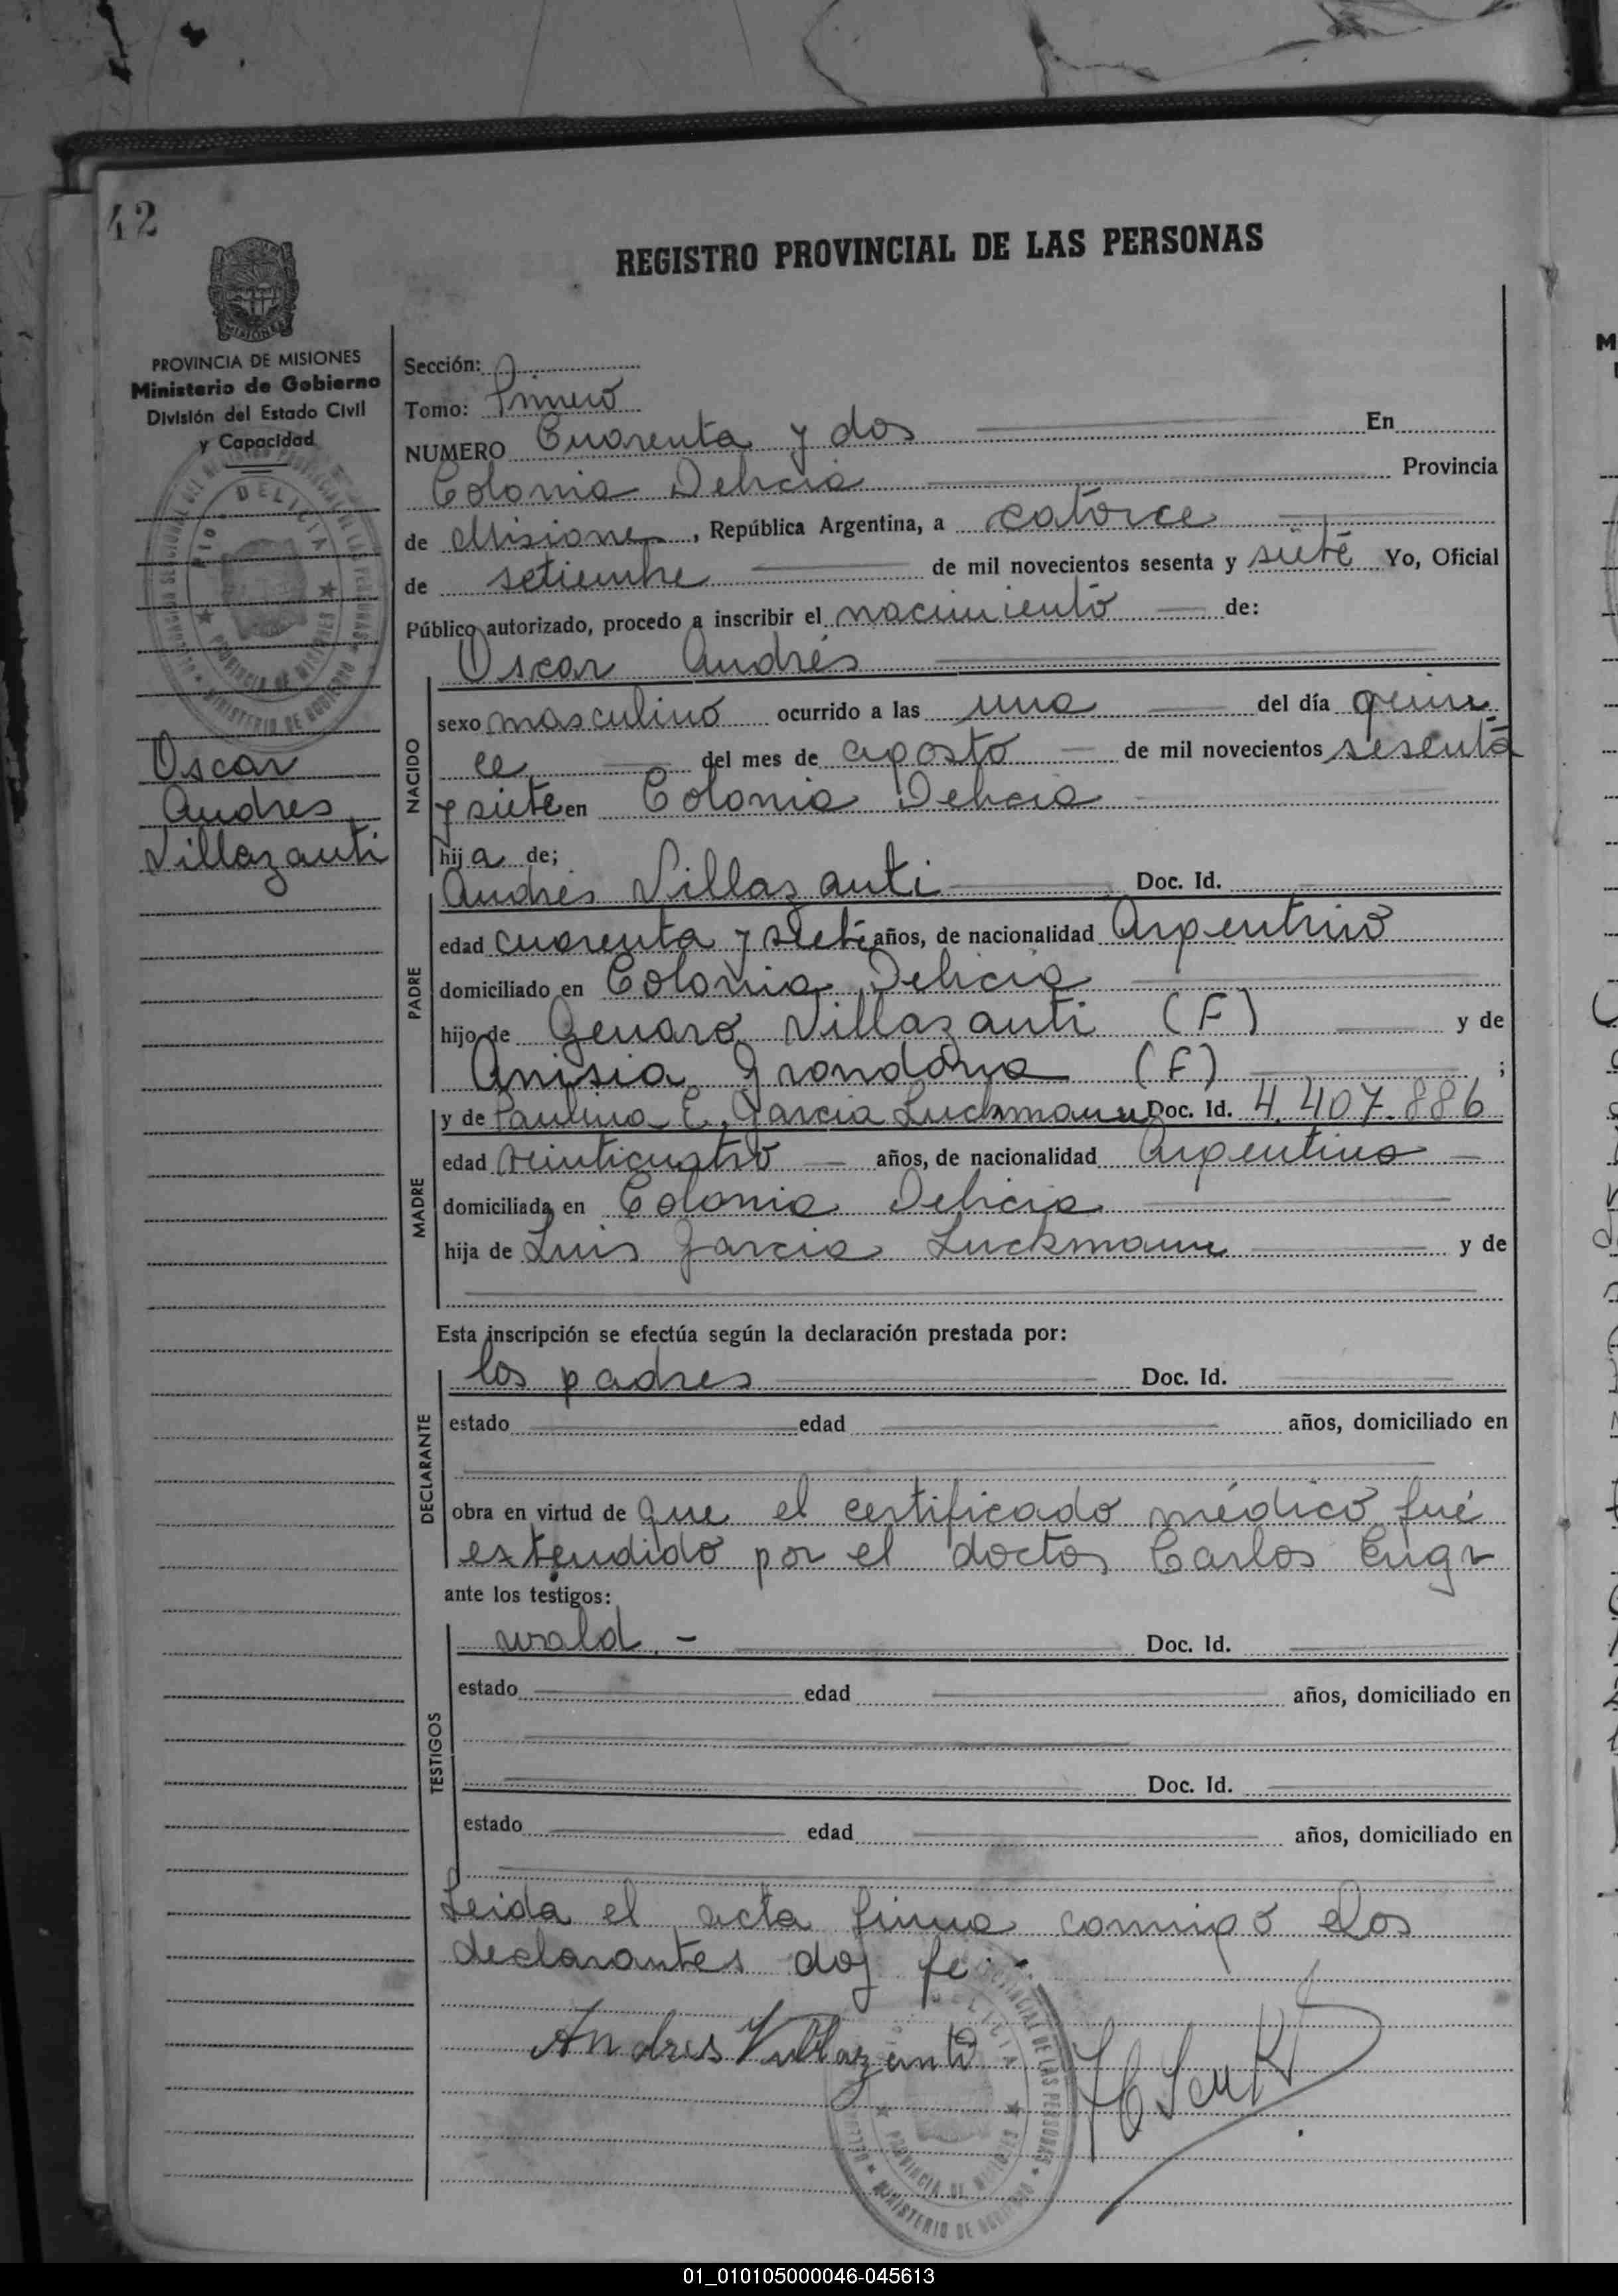 42
REGISTRO PROVINCIAL DE LAS PERSONAS
MISIONES
PROVINCIA DE MISIONES
Ministerio de Gobierno
División del Estado Civil
y Capacidad
DELICIA
PROVINCIA DE MISIONES
MINISTERIO DE GOBIERNO
Oscar
Andres
Villazanti
Sección:
Tomo: Primero
NUMERO Cuarenta y dos En
Colonia Delicia Provincia
de Misiones, República Argentina, a catorce
de setiembre de mil novecientos sesenta y siete Yo, Oficial
Público autorizado, procedo a inscribir el nacimiento de:
Oscar Andrés
NACIDO
sexo masculino ocurrido a las una del día quin
ce del mes de agosto de mil novecientos sesenta
y siete en Colonia Delicia
hija de;
PADRE
Andrés Villazanti Doc. Id.
edad cuarenta y siete años, de nacionalidad Argentino
domiciliado en Colonia Delicia
hijo de Genaro Villazanti (F) y de
Anisia Grondona (F) ;
MADRE
y de Paulina E. Garcia Luckmann Doc. Id. 4.407.886
edad veinticuatro años, de nacionalidad Argentina
domiciliada en Colonia Delicia
hija de Luis Garcia Luckmann y de
Esta inscripción se efectúa según la declaración prestada por:
DECLARANTE
los padres Doc. Id.
estado edad años, domiciliado en
obra en virtud de que el certificado médico fué
extendido por el doctor Carlos
ante los testigos:
TESTIGOS
wald.- Doc. Id.
estado edad años, domiciliado en
Doc. Id.
estado edad años, domiciliado en
Leida el acta firma conmigo los
declarantes doy fe.-
Andres Villazanti
DELICIA
PROVINCIA DE MISIONES
MINISTERIO DE GOBIERNO
01_010105000046-045613